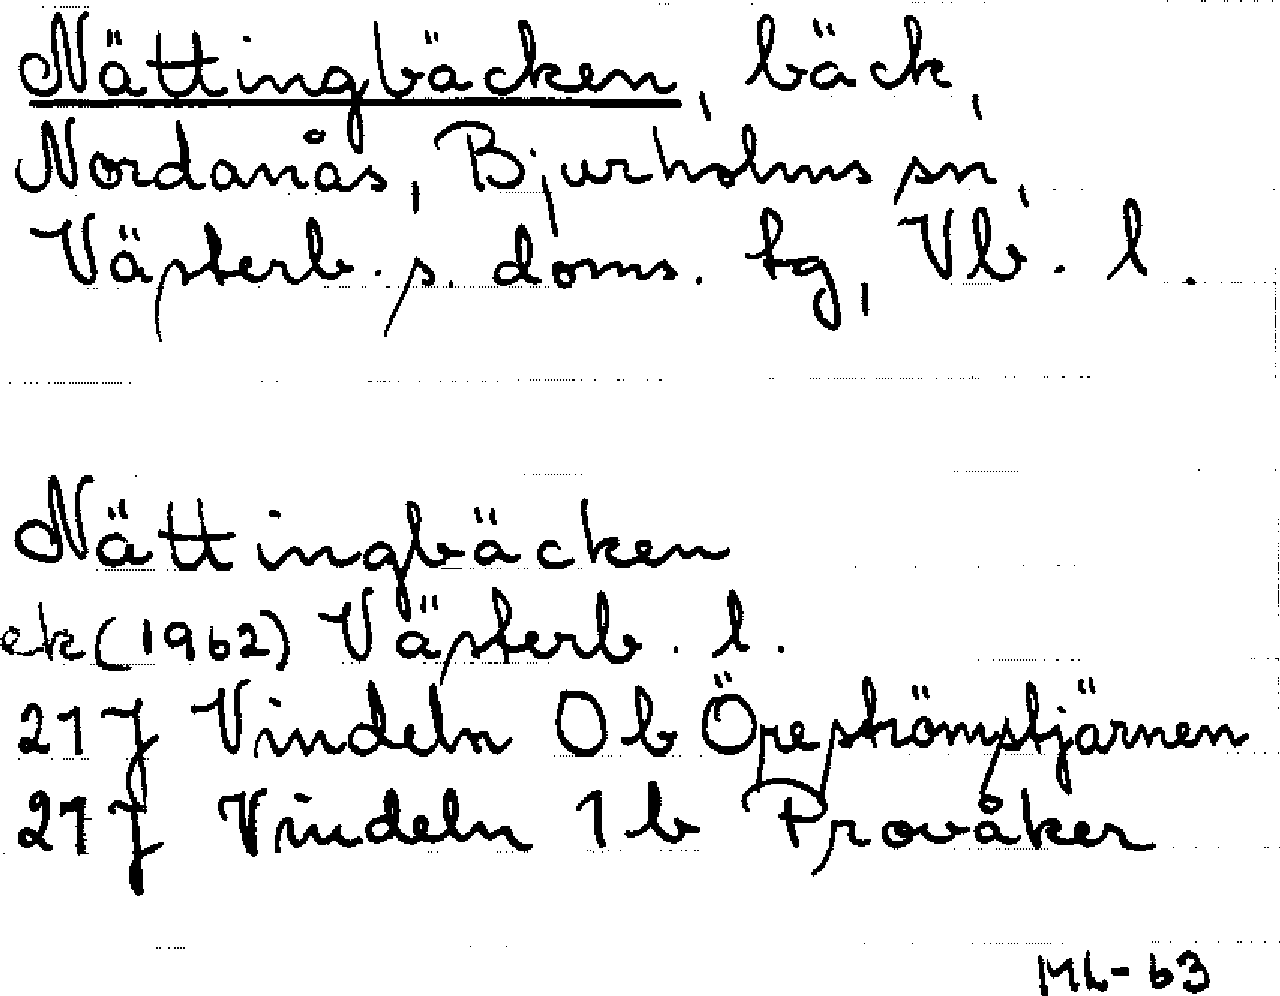 Nättingbäcken, bäck,
Nordanås, Bjurholms sn,
Västerb. s. doms. tg, Vb. l.
Nättingbäcken
ek (1962) Västerb. l.
21J Vindeln 0b Öreströmstjärnen
21J Vindeln 1b Provåker
ML-63